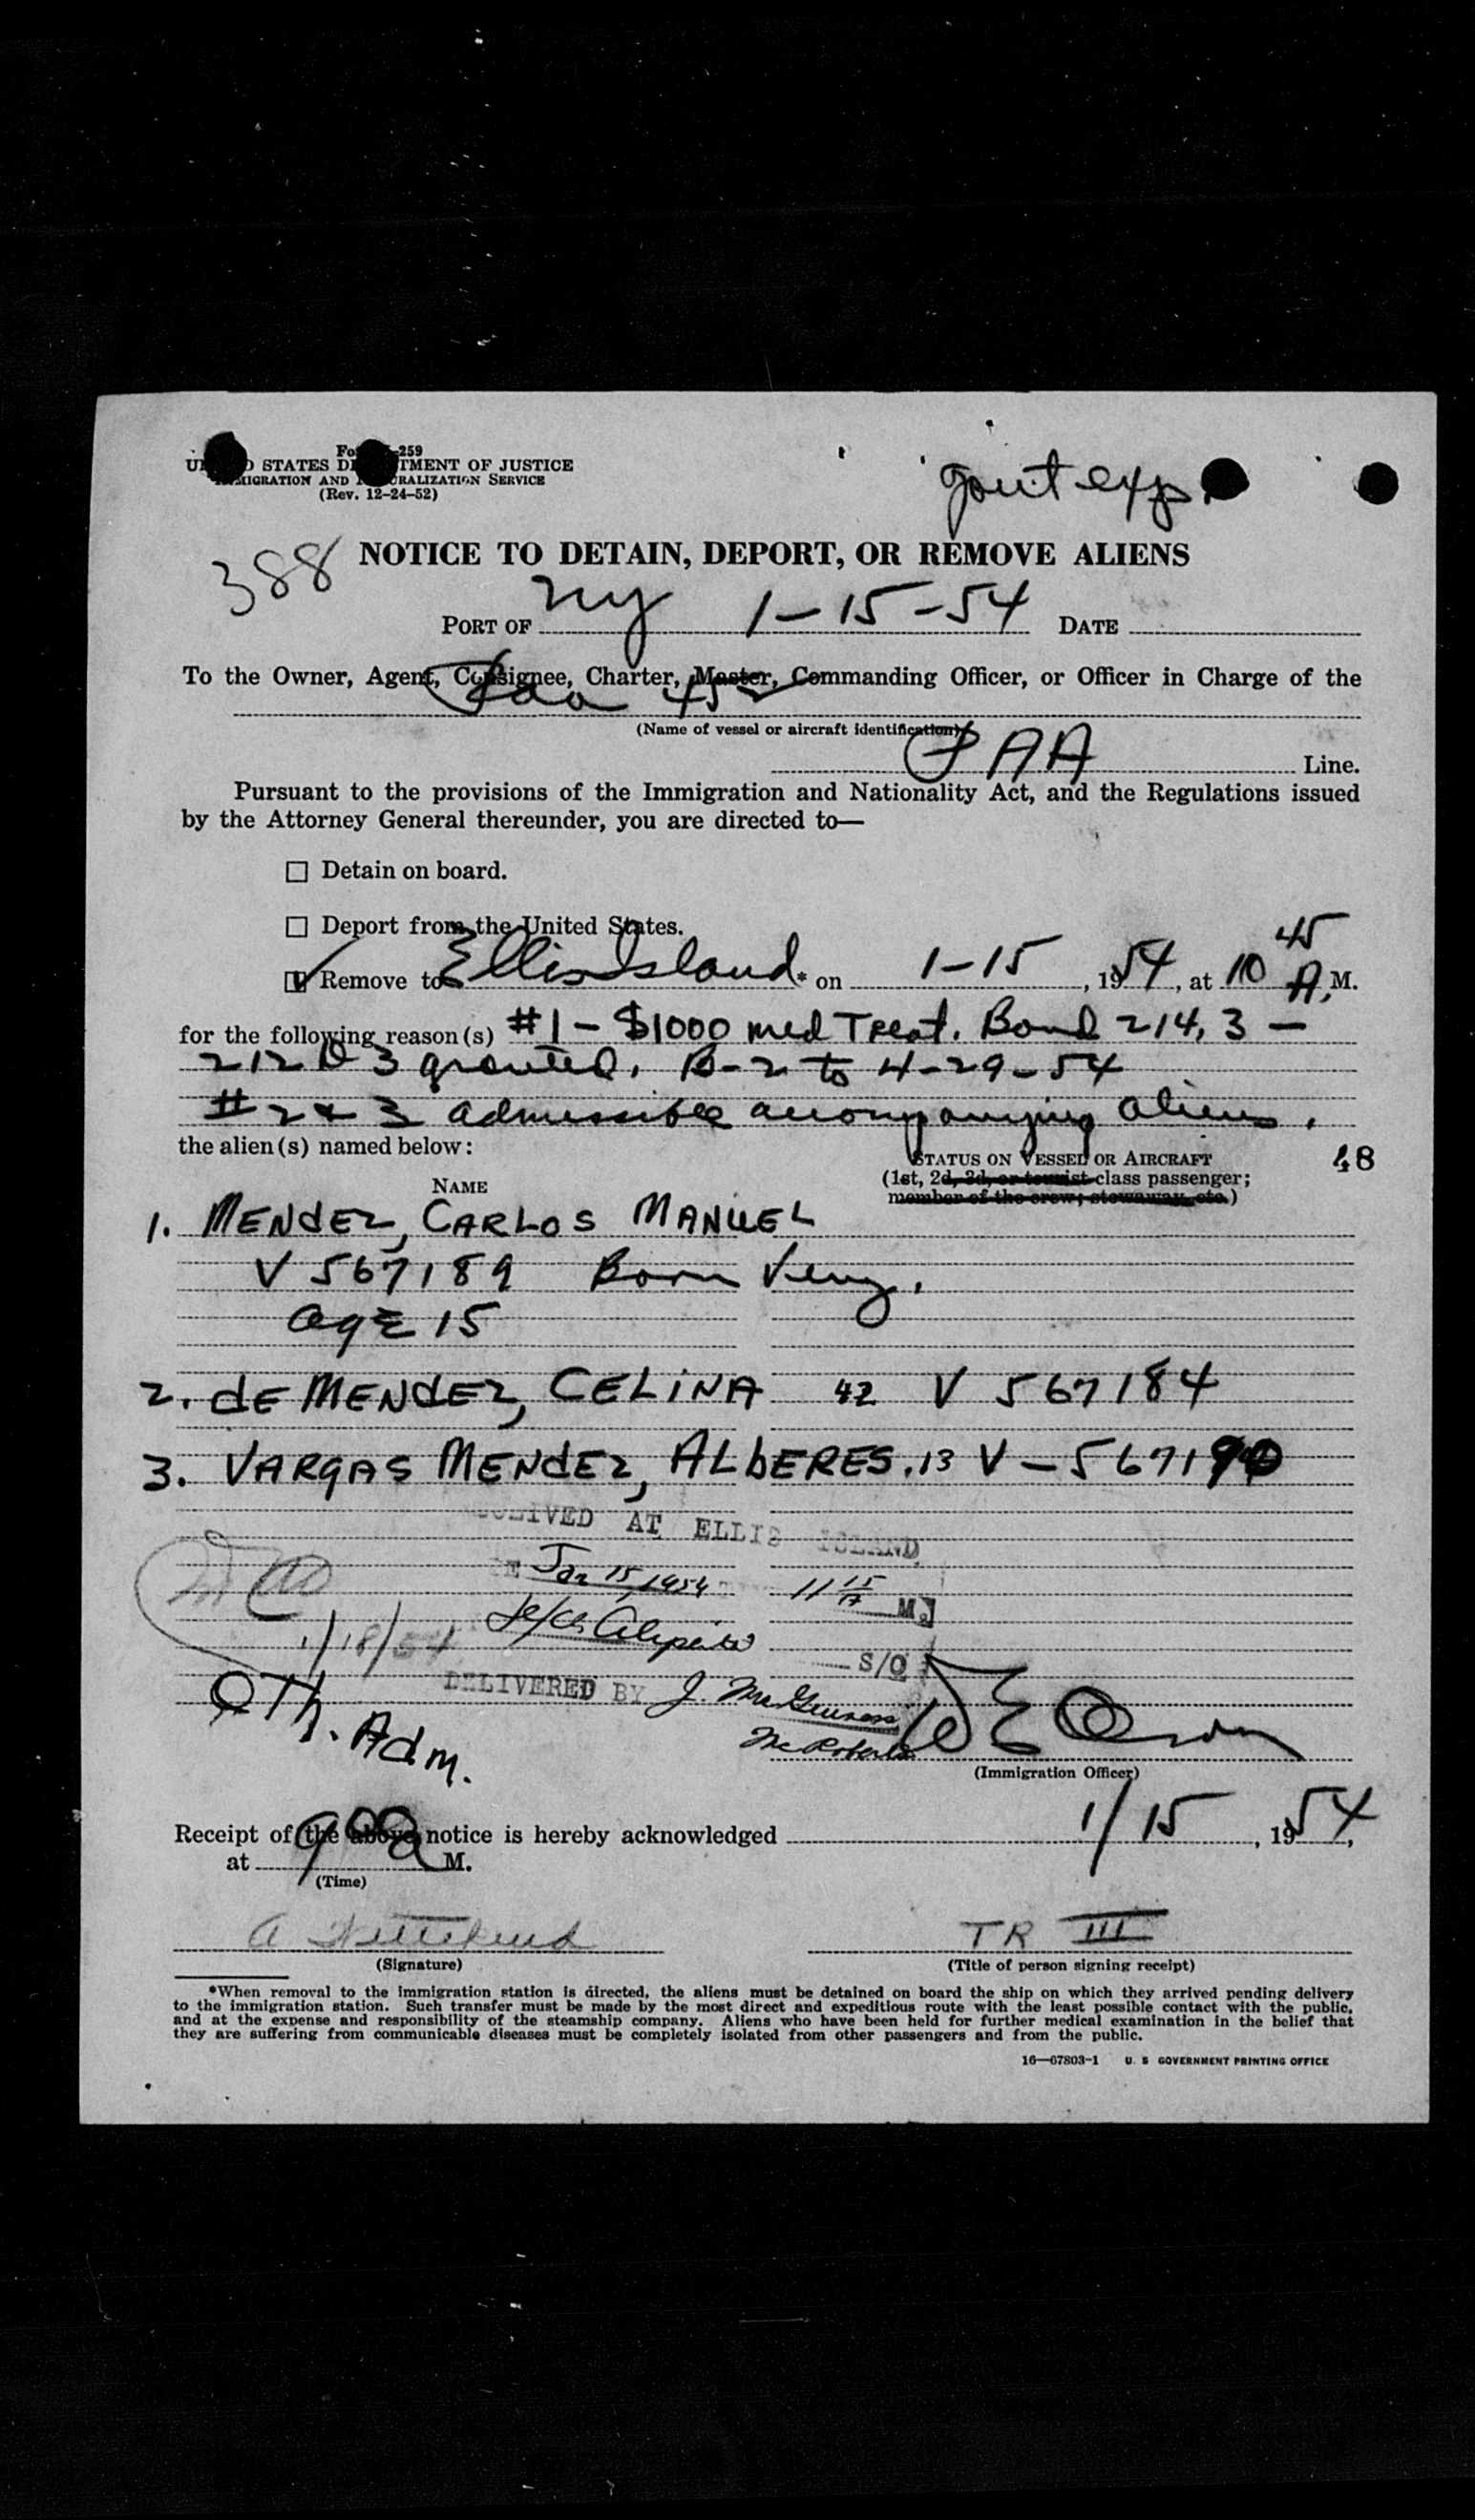 Fo -259
U D STATES D TMENT OF JUSTICE
MIGRATION AND URALIZATION SERVICE
(Rev. 12-24-52)
Gout exp.
388
NOTICE TO DETAIN, DEPORT, OR REMOVE ALIENS
PORT OF NY 1-15-54 DATE
To the Owner, Agent, Consignee, Charter, Master, Commanding Officer, or Officer in Charge of the
Paa 45
(Name of vessel or aircraft identification)
PAA Line.
Pursuant to the provisions of the Immigration and Nationality Act, and the Regulations issued
by the Attorney General thereunder, you are directed to—
☐ Detain on board.
☐ Deport from the United States.
☑ Remove to Ellis Island * on 1-15, 1954, at 10 45 A.M.
for the following reason(s) #1 - $1000 med Treat. Bond 214, 3 -
212 D 3 granted. B-2 to 4-29-54
# 2 & 3 admissible accompanying aliens.
the alien(s) named below:
STATUS ON VESSEL OR AIRCRAFT
(1st, 2d, 3d, or tourist class passenger;
member of the crew; stowaway, etc.)
48
NAME
1. MENdEZ, CARLOS MANUEL
V 567189 Born Venz.
age 15
2. dE MENdEZ, CELiNA 42 V 567184
3. VARGAS MENdEZ, ALbERES. 13 V-567190
RECEIVED AT ELLIS ISLAND
Jan 15, 1954 11 15 A M.
1/18/54
S/O
DELIVERED BY J. McGuinness
McRoberts
OTh. Adm.
(Immigration Officer)
Receipt of the above notice is hereby acknowledged 1/15, 1954,
at 9 00 a M.
(Time)
A TR III
(Signature) (Title of person signing receipt)
*When removal to the immigration station is directed, the aliens must be detained on board the ship on which they arrived pending delivery
to the immigration station. Such transfer must be made by the most direct and expeditious route with the least possible contact with the public,
and at the expense and responsibility of the steamship company. Aliens who have been held for further medical examination in the belief that
they are suffering from communicable diseases must be completely isolated from other passengers and from the public.
16—67803-1 U. S GOVERNMENT PRINTING OFFICE